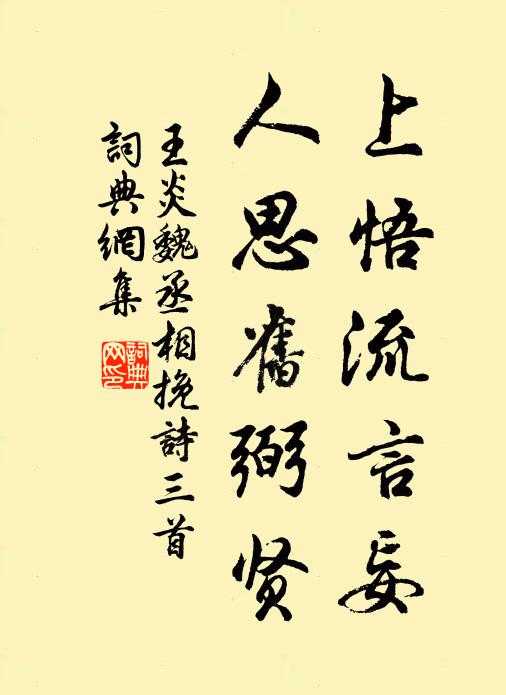 上悟流言妄
人思舊弼贤
王炎魏丞相挽詩三首
詞典網集
詞典网印